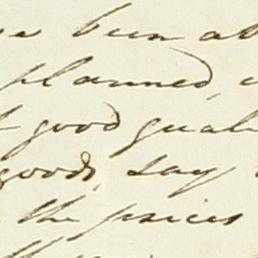 been
planned,
good quali
goods, say
the prices